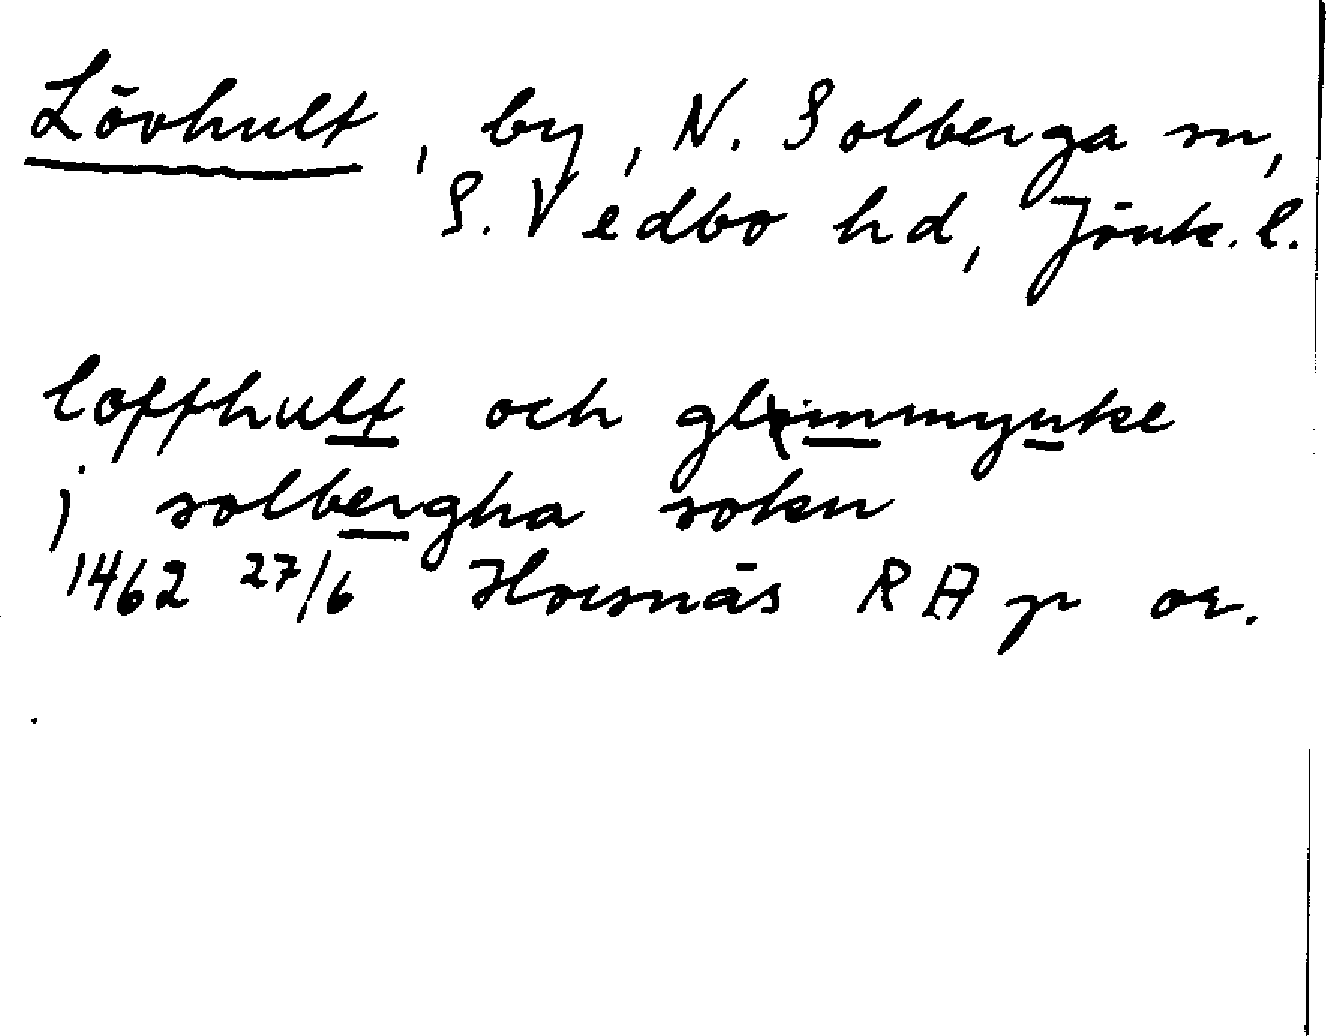 Lövhult, by, N. Solberga sn,
S. Vedbo hd, Jönk. l.
loffhult och glimmynke
j solbergha sokn
1462 27/6 Hornäs RA p or.